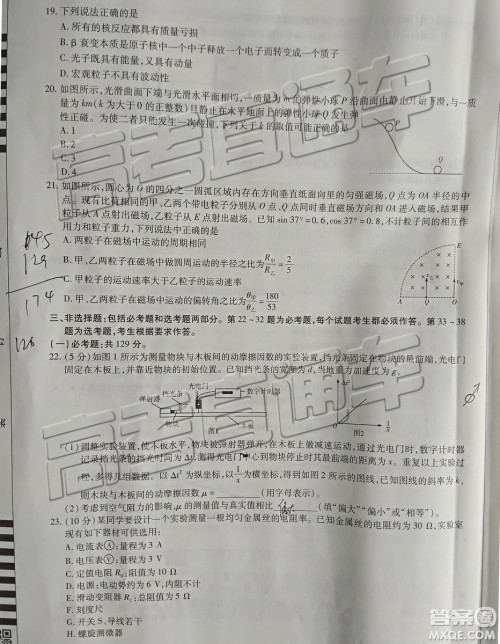 19. 下列说法正确的是
A. 所有的核反应都具有质量亏损
B. β 衰变本质是原子核中一个中子释放一个电子而转变成一个质子
C. 光子既具有能量,又具有动量
D. 宏观粒子不具有波动性
20. 如图所示,光滑曲面下端与光滑水平面相切,一质量为 m 的弹性小球 P 沿曲面由静止开始下滑,与一质
量为 km(k 为大于 0 的正整数)且静止在水平地面上的弹性小球 Q 发生弹
性正碰。为使二者只能发生一次碰撞,下列关于 k 的取值可能正确的是
A. 1
B. 2
C. 3
D. 4
P
Q
21. 如图所示,圆心为 O 的四分之一圆弧区域内存在方向垂直纸面向里的匀强磁场,Q 点为 OA 半径的中
点。现有比荷相同的甲、乙两个带电粒子,均以平行于 OE 半径方向的速度射入磁场,结果甲
粒子从 A 点射出磁场,乙粒子从 E 点射出磁场。已知 sin 37°=0.6,cos 37°=0.8,不计粒子间的相互作
用力和重力,下列说法正确的是
A. 两粒子在磁场中运动的周期相同
B. 甲、乙两粒子在磁场中做圆周运动的半径之比为 R甲/R乙=2/5
C. 甲粒子的运动速率大于乙粒子的运动速率
D. 甲、乙两粒子在磁场中运动的偏转角之比为 θ甲/θ乙=180/53
E
O
Q
A
129
174
126
三、非选择题:包括必考题和选考题两部分。第 22~32 题为必考题,每个试题考生都必须作答。第 33~38
题为选考题,考生根据要求作答。
(一)必考题:共 129 分。
22. (5 分)如图 1 所示为测量物块与木板间的动摩擦因数的实验装置,挡光片固定在物块的最前端,光电门
固定在木板上,并靠近物块的初始位置。已知挡光片的宽度为 d,当地重力加速度为 g。
弹射器
挡光条
光电门
数字计时器
物块
木板
图1
图2
(1)调整实验装置,使木板水平,物块被弹射器弹开,在木板上做减速运动,通过光电门时,数字计时器
多,得到几组数据。以 Δt² 为纵坐标,以 1/x 为横坐标,得到如图 2 所示的图线。已知图线的斜率为 k,
则木块与木板间的动摩擦因数 μ = ______(用字母表示)。
(2)考虑到空气阻力的影响,动摩擦因数 μ 的测量值与真实值相比______(填“偏大”“偏小”或“相等”)。
23. (10 分)某同学要设计一个实验测量一根均匀金属丝的电阻率。已知金属丝的电阻约为 30 Ω,实验室
现有以下器材可供选用:
A. 电流表Ⓐ:量程为 3 A
B. 电压表Ⓥ:量程为 3 V
C. 定值电阻 R₀:阻值为 10 Ω
D. 电源:电动势约为 6 V,内阻不计
E. 滑动变阻器 R:最大阻值为 5 Ω
F. 刻度尺
G. 开关 S、导线若干
H. 螺旋测微器
高考直通车
高考直通车
答案圈
MXQE.COM